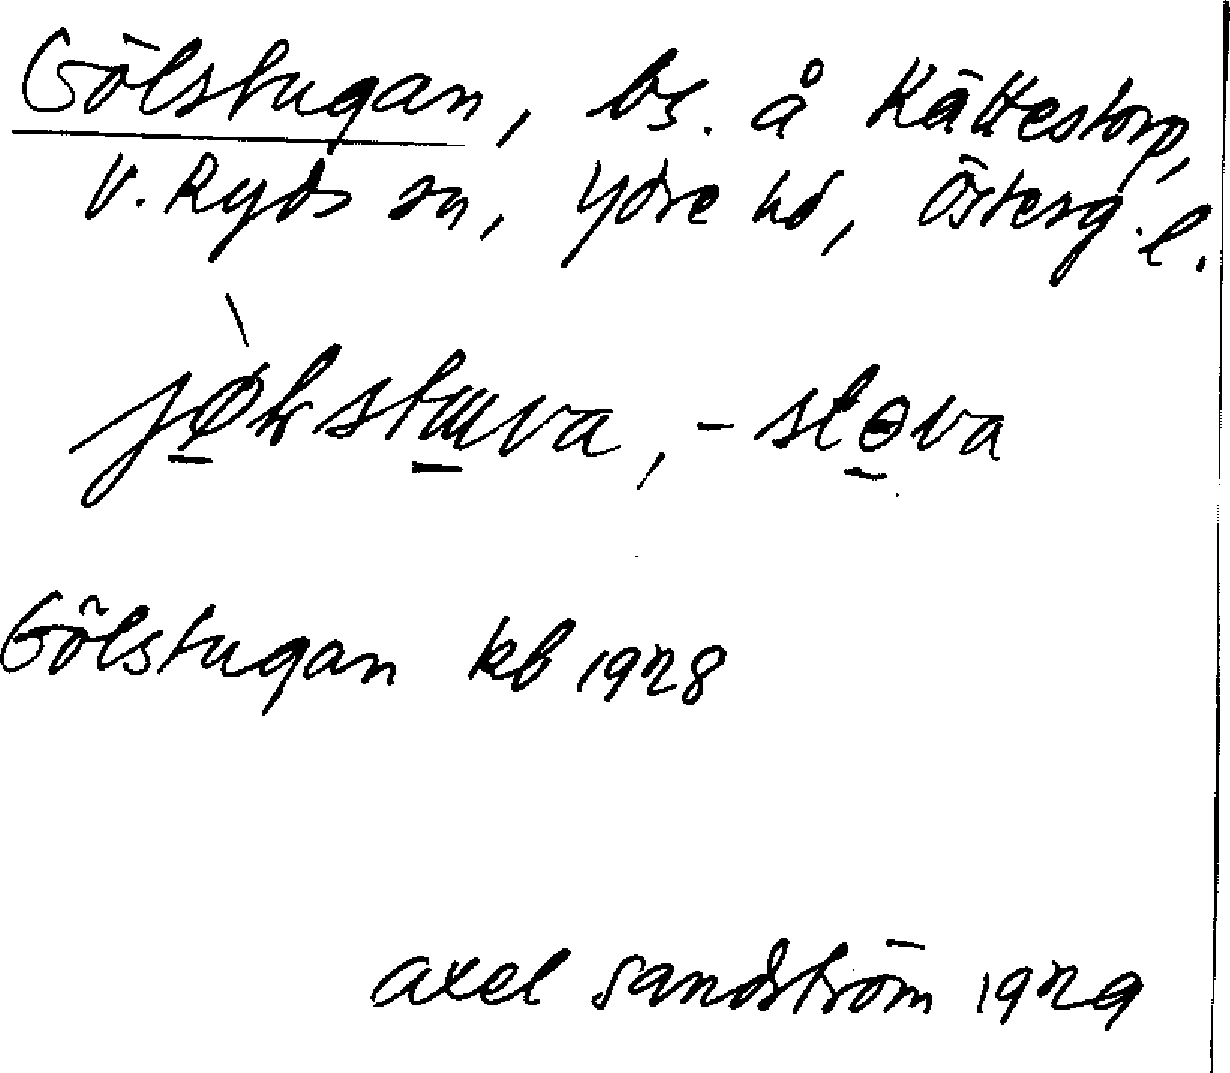 Gölstugan, bs. å Kättestorp,
V. Ryds sn, Ydre hd, Österg. l.
Gölstugan kb 1928
Axel Sandström 1929